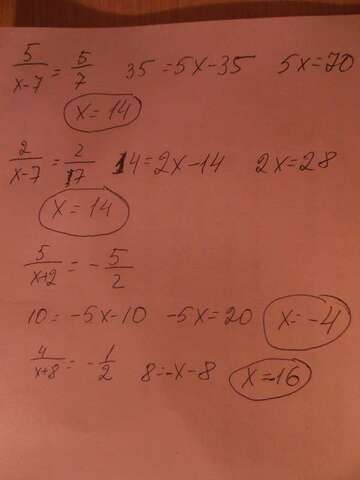 5/(x-7) = 5/7 35 = 5x-35 5x=70
x=14
2/(x-7) = 2/7 14=2x-14 2x=28
x=14
5/(x+2) = -5/2
10=-5x-10 -5x=20 x=-4
4/(x+8) = -1/2 8=-x-8 x=-16